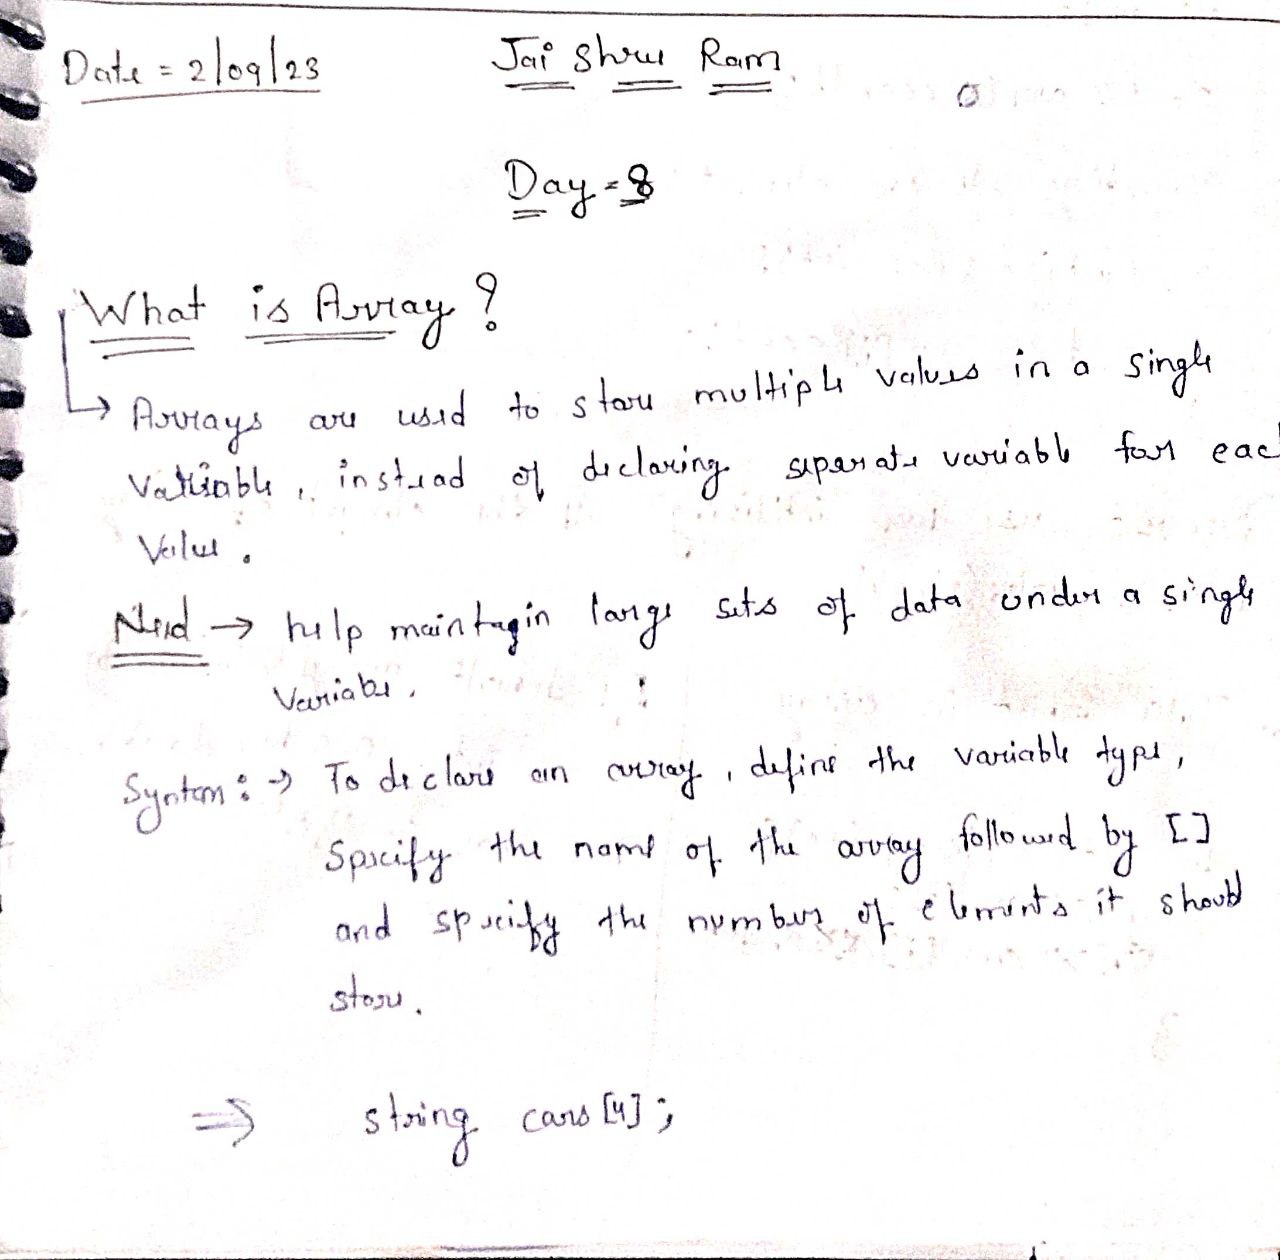 Date = 2/09/23
Jai Shree Ram
Day = 8
What is Array?
→ Arrays are used to store multiple values in a single
variable, instead of declaring separate variable for eac
Value.
Need → help maintagin large sets of data under a single
Variable.
Syntam : → To declare an array, define the variable type,
Specify the name of the array followed by []
and specify the number of elements it should
store.
⇒ string cars [4];